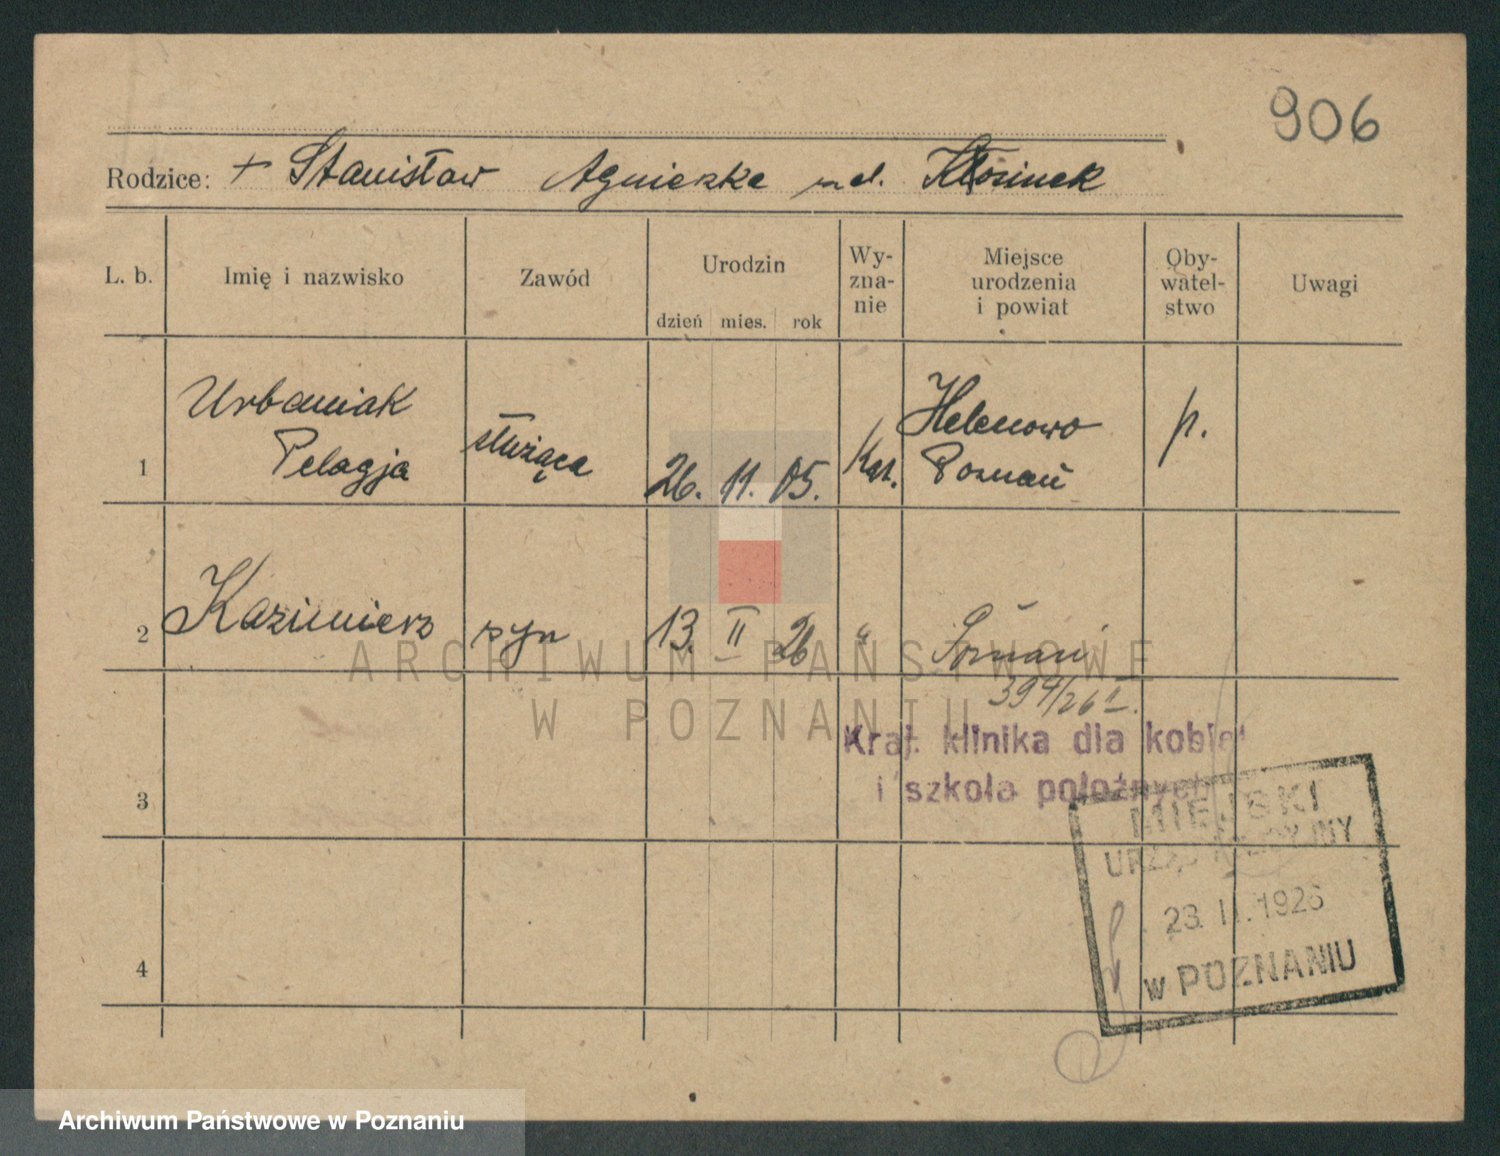 906
Rodzice: + Stanisław Agnieszka zd. Kłosinek
L. b.
Imię i nazwisko
Zawód
Urodzin
dzień mies. rok
Wy-
zna-
nie
Miejsce
urodzenia
i powiat
Oby-
watel-
stwo
Uwagi
1
Urbaniak
Pelagja
służąca
26. 11. 05.
Kat.
Helenowo
Poznań
p.
2
Kazimierz
syn
13. II 26
"
Poznań
394/26 II.
Kraj. klinika dla kobiet
i szkoła położnych
3
MIEJSKI
URZĄD
23. II. 1926
w POZNANIU
4
ARCHIWUM PAŃSTWOWE
W POZNANIU
Archiwum Państwowe w Poznaniu